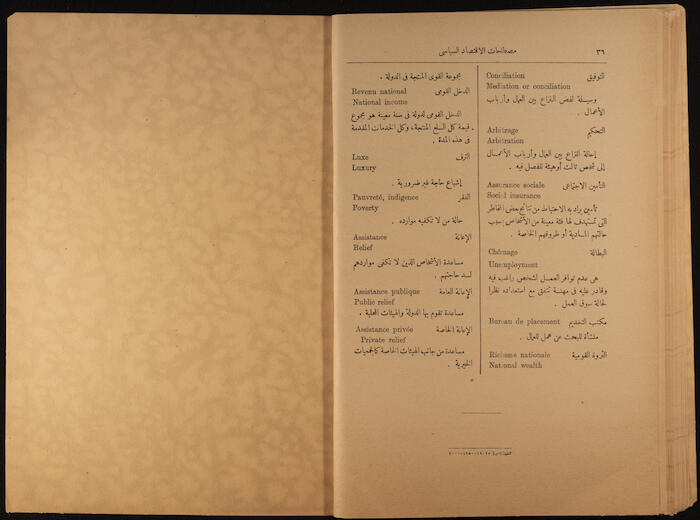 ٣٦
مصطلحات الاقتصاد السياسى
Conciliation التوفيق
Mediation or conciliation
وسيلة لفض النزاع بين العمال وأرباب
الأعمال .
Arbitrage التحكيم
Arbitration
إحالة النزاع بين العمال وأرباب الأعمال
إلى شخص ثالث أو هيئة للفصل فيه .
Assurance sociale التأمين الاجتماعى
Social insurance
تأمين يراد به الاحتياط من نتائج بعض المخاطر
التى تستهدف لها فئة معينة من الأشخاص بسبب
حالتهم المادية أو ظروفهم الخاصة .
Chômage البطالة
Unemployment
هى عدم توافر العمل لشخص راغب فيه
وقادر عليه فى مهنة تتفق مع استعداده نظرا
لحالة سوق العمل .
Bureau de placement مكتب التخديم
منشأة للبحث عن عمل للعمال .
Richesse nationale الثروة القومية
National wealth
مجموعة القوى المنتجة فى الدولة .
Revenu national الدخل القومى
National income
الدخل القومى لدولة فى سنة معينة هو مجموع
قيمة كل السلع المنتجة، وكل الخدمات المقدمة
فى هذه المدة .
Luxe الترف
Luxury
إشباع حاجة غير ضرورية .
Pauvreté, indigence الفقر
Poverty
حالة من لا تكفيه موارده .
Assistance الإعانة
Relief
مساعدة الأشخاص الذين لا تكفى مواردهم
لسد حاجتهم .
Assistance publique الإعانة العامة
Public relief
مساعدة تقوم بها الدولة والهيئات المحلية .
Assistance privée الإعانة الخاصة
Private relief
مساعدة من جانب الهيئات الخاصة كالجمعيات
الخيرية .